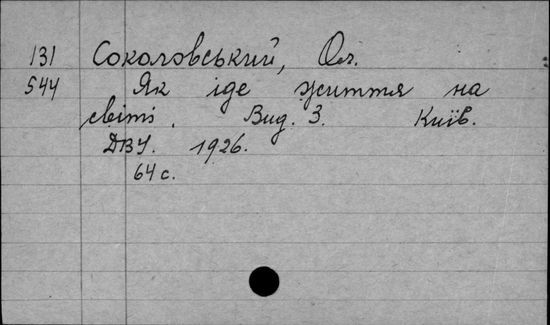 131 Соколовський, Ол.
544 Як іде життя на
світі. Вид. 3. Київ.
ДВУ. 1926.
64 с.